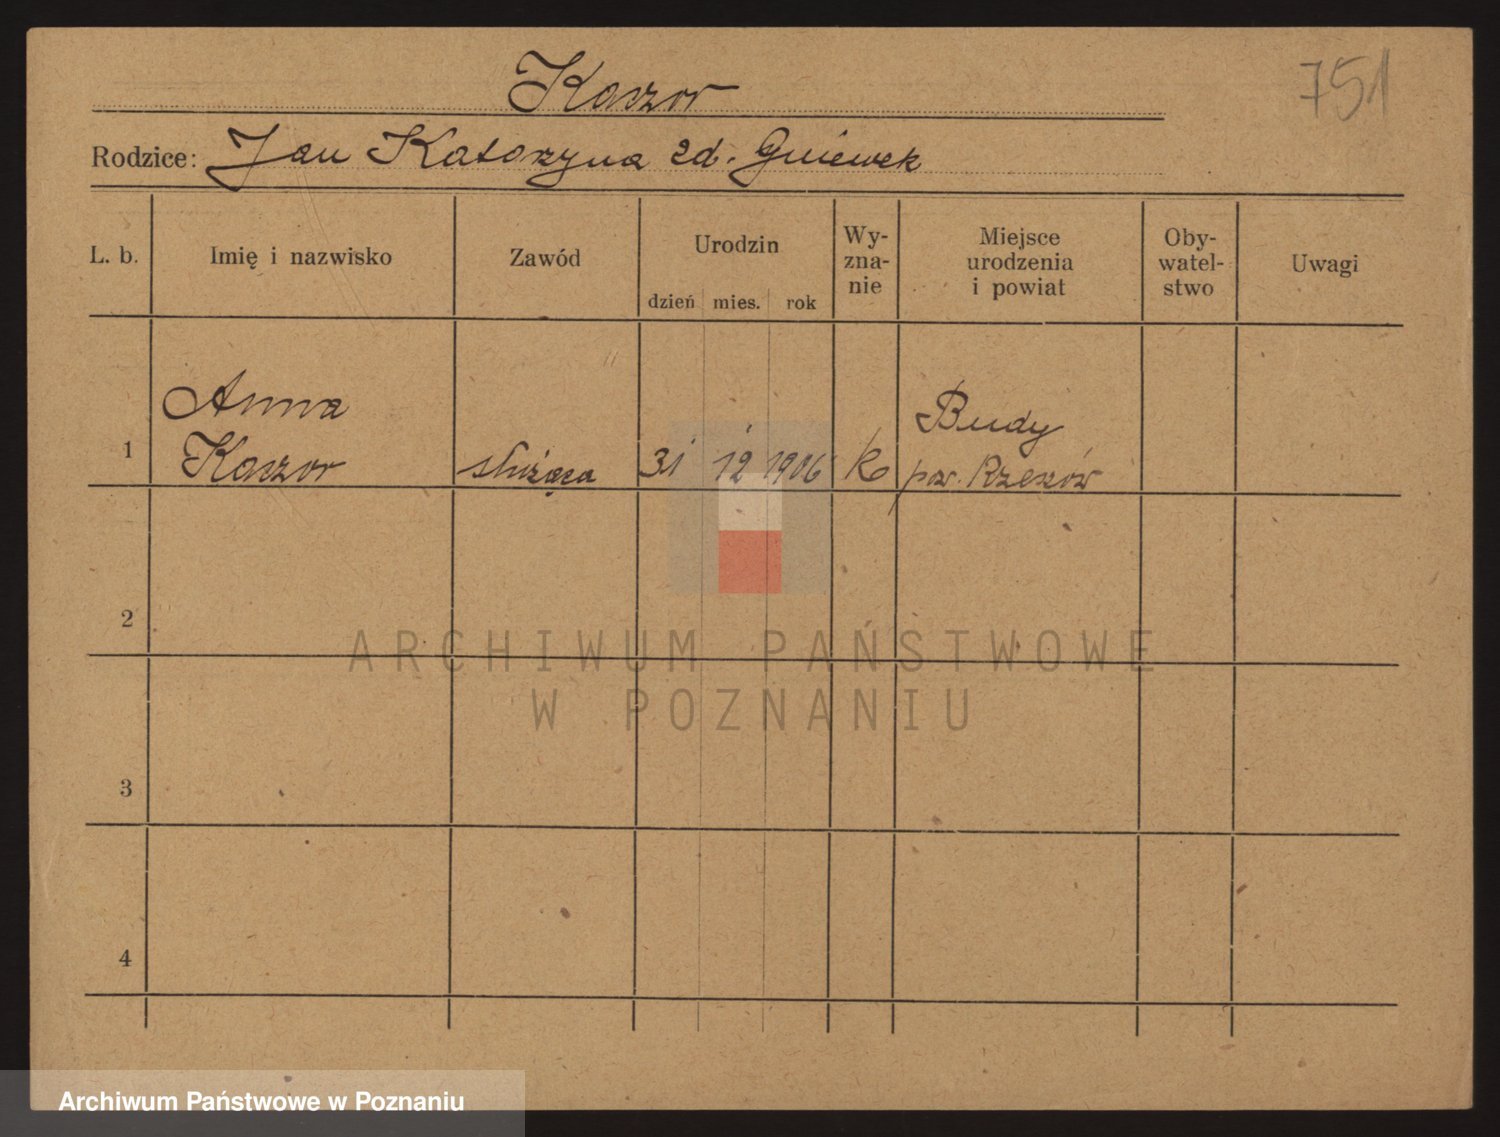 Kaczor
751
Rodzice: Jan Katarzyna zd. Gniewek
L. b.
Imię i nazwisko
Zawód
Urodzin
dzień mies. rok
Wy-
zna-
nie
Miejsce
urodzenia
i powiat
Oby-
watel-
stwo
Uwagi
1
Anna
Kaczor
służąca
31 12 1906
k
Budy
pow. Rzeszów
2
3
4
ARCHIWUM PAŃSTWOWE
W POZNANIU
Archiwum Państwowe w Poznaniu